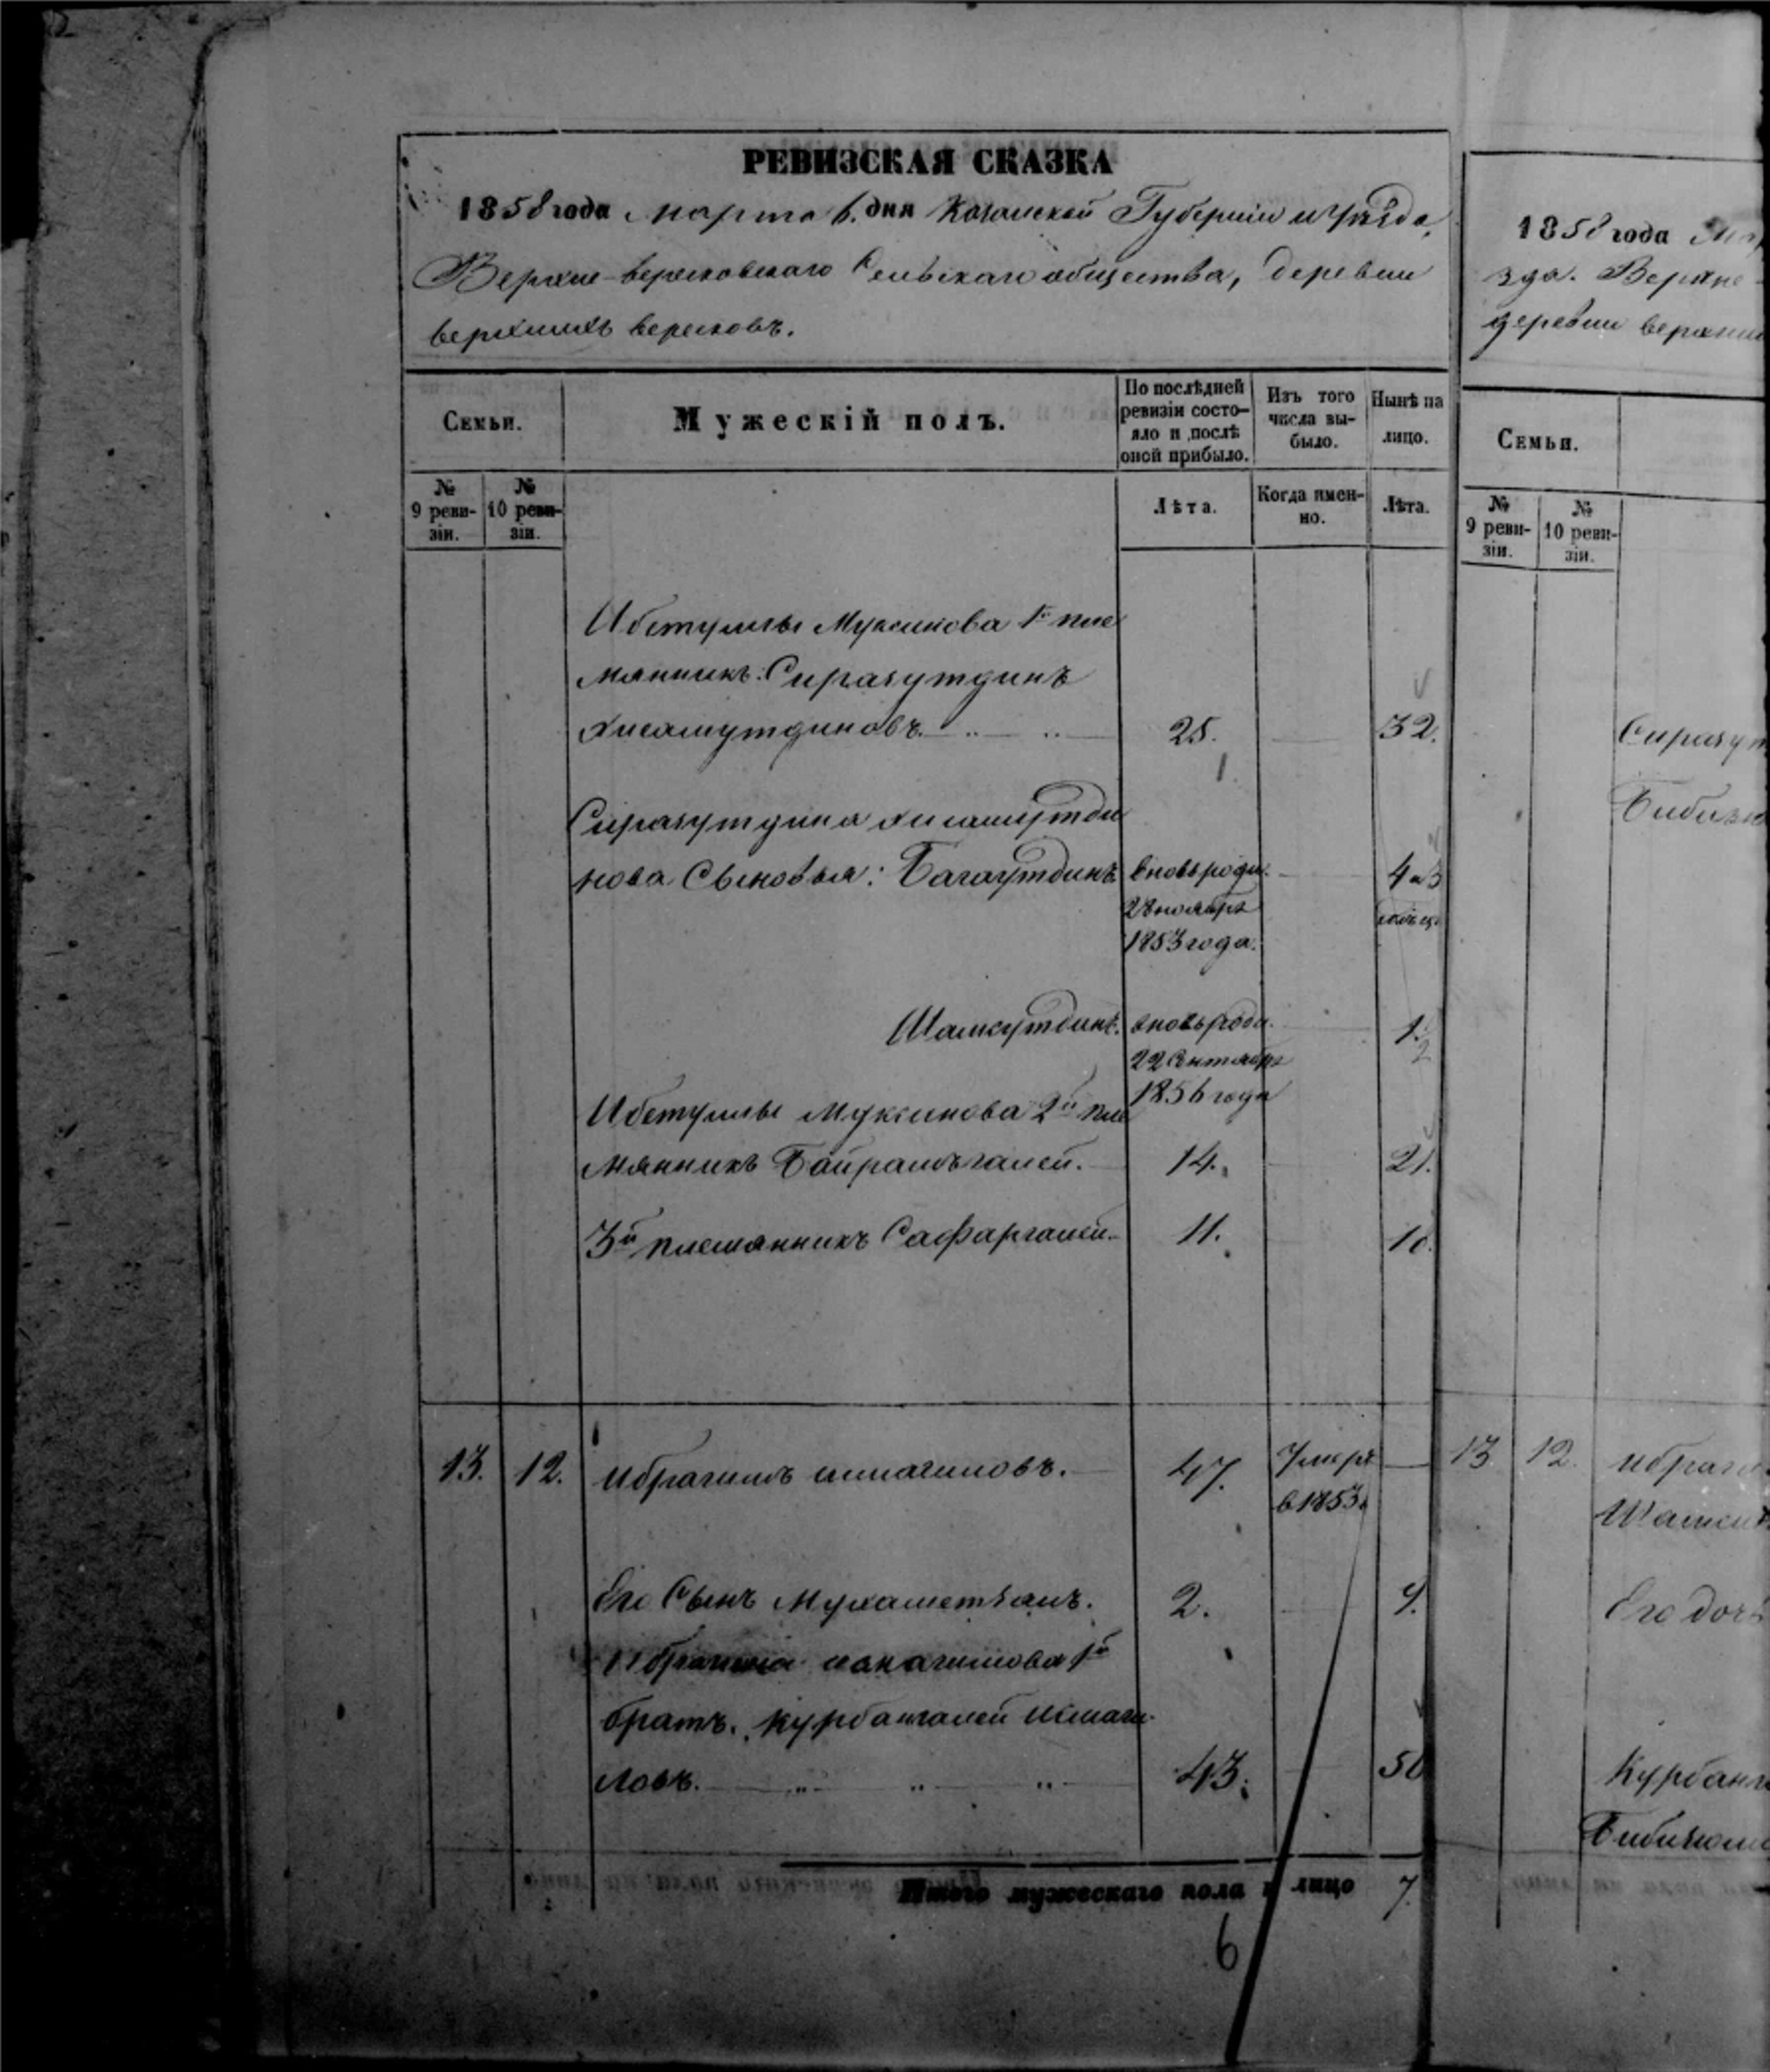 РЕВИЗСКАЯ СКАЗКА
1858 года Марта 6. дня Казанской Губерніи и Уѣзда,
Верхне-верезовскаго Сельскаго общества, деревни
верхнихъ верезовъ.
Семьи.
Мужескій полъ.
По послѣдней ревизіи состо-
яло и послѣ
оной прибыло.
Изъ того
числа вы-
было.
Нынѣ на
лицо.
№
9 реви-
зіи.
№
10 реви-
зіи.
Лѣта.
Когда имен-
но.
Лѣта.
Ибетуллы Муксинова 1й пле
мянникъ: Сиразутдинъ
Хисамутдиновъ. 25. 32.
1
Сиразутдина Хисамутди
нова Сыновья: Багаутдинъ вновь роди. 4 а 3
28 ноября
1853 года.
Шамсутдинъ. вновь роди. 1 1/2
22 Сентября
1856 года
Ибетуллы Муксинова 2й пле
мянникъ Байрамъгалей. 14. 21.
3й племянникъ Сафаргалей. 11. 18.
13. 12. Ибрагимъ 47. Умеръ
в 1853
Его Сынъ Мухаметзянъ. 2. 9.
1й
братъ. Курбангалей Исмаги-
ловъ. 43. 50
Итого мужескаго пола на лицо 7.
6
1858 года Мар
зда. Верхне-
деревни верхни
Семьи.
№
9 реви-
зіи.
№
10 реви-
зіи.
Сиразут
13. 12. Ибраги
Его доч
Курбанг